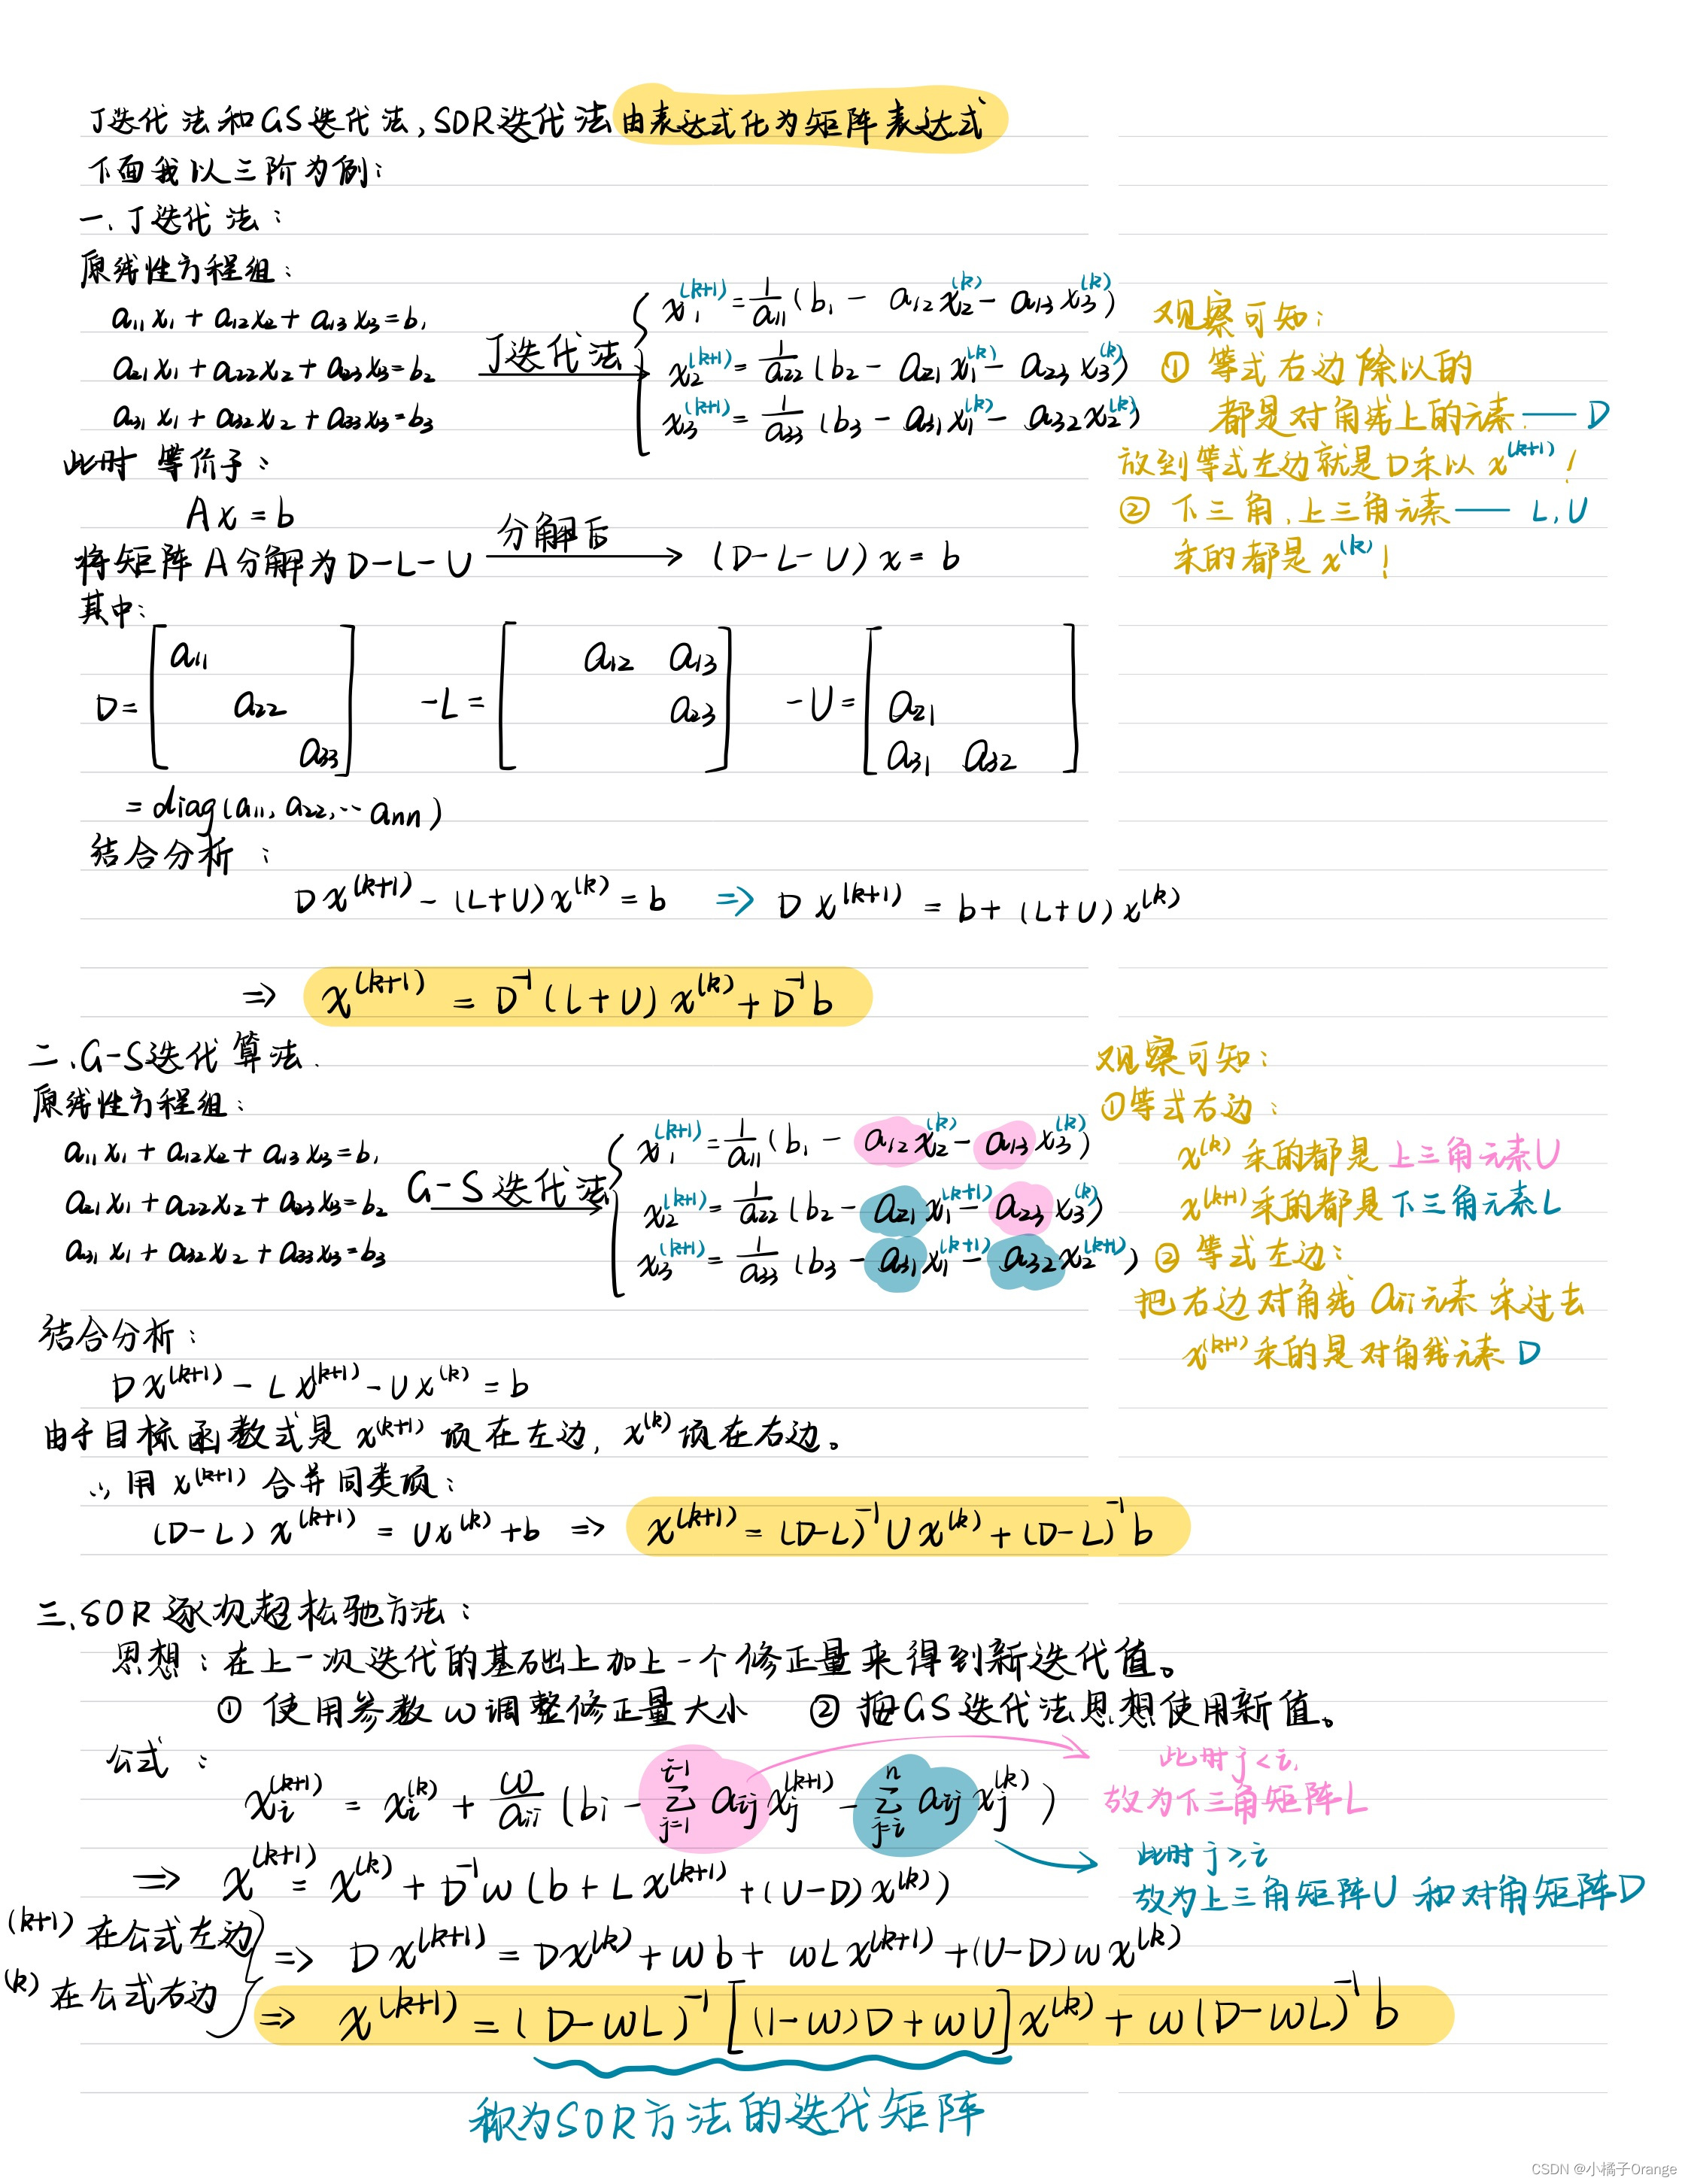 J迭代法和GS迭代法,SOR迭代法由表达式化为矩阵表达式
下面我以三阶为例:
一.J迭代法:
原线性方程组:
a₁₁x₁+a₁₂x₂+a₁₃x₃=b₁
a₂₁x₁+a₂₂x₂+a₂₃x₃=b₂
a₃₁x₁+a₃₂x₂+a₃₃x₃=b₃
J迭代法
x₁^(k+1)=1/a₁₁(b₁-a₁₂x₂^(k)-a₁₃x₃^(k))
x₂^(k+1)=1/a₂₂(b₂-a₂₁x₁^(k)-a₂₃x₃^(k))
x₃^(k+1)=1/a₃₃(b₃-a₃₁x₁^(k)-a₃₂x₂^(k))
观察可知:
① 等式右边除以的
都是对角线上的元素——D
放到等式左边就是D乘以x^(k+1)!
② 下三角,上三角元素——L,U
乘的都是x^(k)!
此时等价于:
Ax=b
将矩阵A分解为D-L-U 分解后→ (D-L-U)x=b
其中:
D=[a₁₁ a₂₂ a₃₃] -L=[a₁₂ a₁₃ a₂₃] -U=[a₂₁ a₃₁ a₃₂]
=diag(a₁₁,a₂₂,…aₙₙ)
结合分析:
Dx^(k+1)-(L+U)x^(k)=b ⇒ Dx^(k+1)=b+(L+U)x^(k)
⇒ x^(k+1)=D⁻¹(L+U)x^(k)+D⁻¹b
二.G-S迭代算法.
原线性方程组:
a₁₁x₁+a₁₂x₂+a₁₃x₃=b₁
a₂₁x₁+a₂₂x₂+a₂₃x₃=b₂
a₃₁x₁+a₃₂x₂+a₃₃x₃=b₃
G-S迭代法
x₁^(k+1)=1/a₁₁(b₁-a₁₂x₂^(k)-a₁₃x₃^(k))
x₂^(k+1)=1/a₂₂(b₂-a₂₁x₁^(k+1)-a₂₃x₃^(k))
x₃^(k+1)=1/a₃₃(b₃-a₃₁x₁^(k+1)-a₃₂x₂^(k+1))
观察可知:
①等式右边:
x^(k)乘的都是上三角元素U
x^(k+1)乘的都是下三角元素L
② 等式左边:
把右边对角线aᵢᵢ元素乘过去
x^(k+1)乘的是对角线元素D
结合分析:
Dx^(k+1)-Lx^(k+1)-Ux^(k)=b
由于目标函数式是x^(k+1)项在左边,x^(k)项在右边。
∴用x^(k+1)合并同类项:
(D-L)x^(k+1)=Ux^(k)+b ⇒ x^(k+1)=(D-L)⁻¹Ux^(k)+(D-L)⁻¹b
三.SOR逐次超松弛方法:
思想:在上一次迭代的基础上加上一个修正量来得到新迭代值。
① 使用参数ω调整修正量大小 ② 按GS迭代法思想使用新值。
公式:
xᵢ^(k+1)=xᵢ^(k)+ω/aᵢᵢ(bᵢ-∑_{j=1}^{i-1}aᵢⱼxⱼ^(k+1)-∑_{j=i}^{n}aᵢⱼxⱼ^(k))
此时j<i,
故为下三角矩阵L
⇒ x^(k+1)=x^(k)+D⁻¹ω(b+Lx^(k+1)+(U-D)x^(k))
此时j≥i
故为上三角矩阵U和对角矩阵D
(k+1)在公式左边
(k)在公式右边
⇒ Dx^(k+1)=Dx^(k)+ωb+ωLx^(k+1)+(U-D)ωx^(k)
⇒ x^(k+1)=(D-ωL)⁻¹[(1-ω)D+ωU]x^(k)+ω(D-ωL)⁻¹b
称为SOR方法的迭代矩阵
CSDN @小橘子Orange